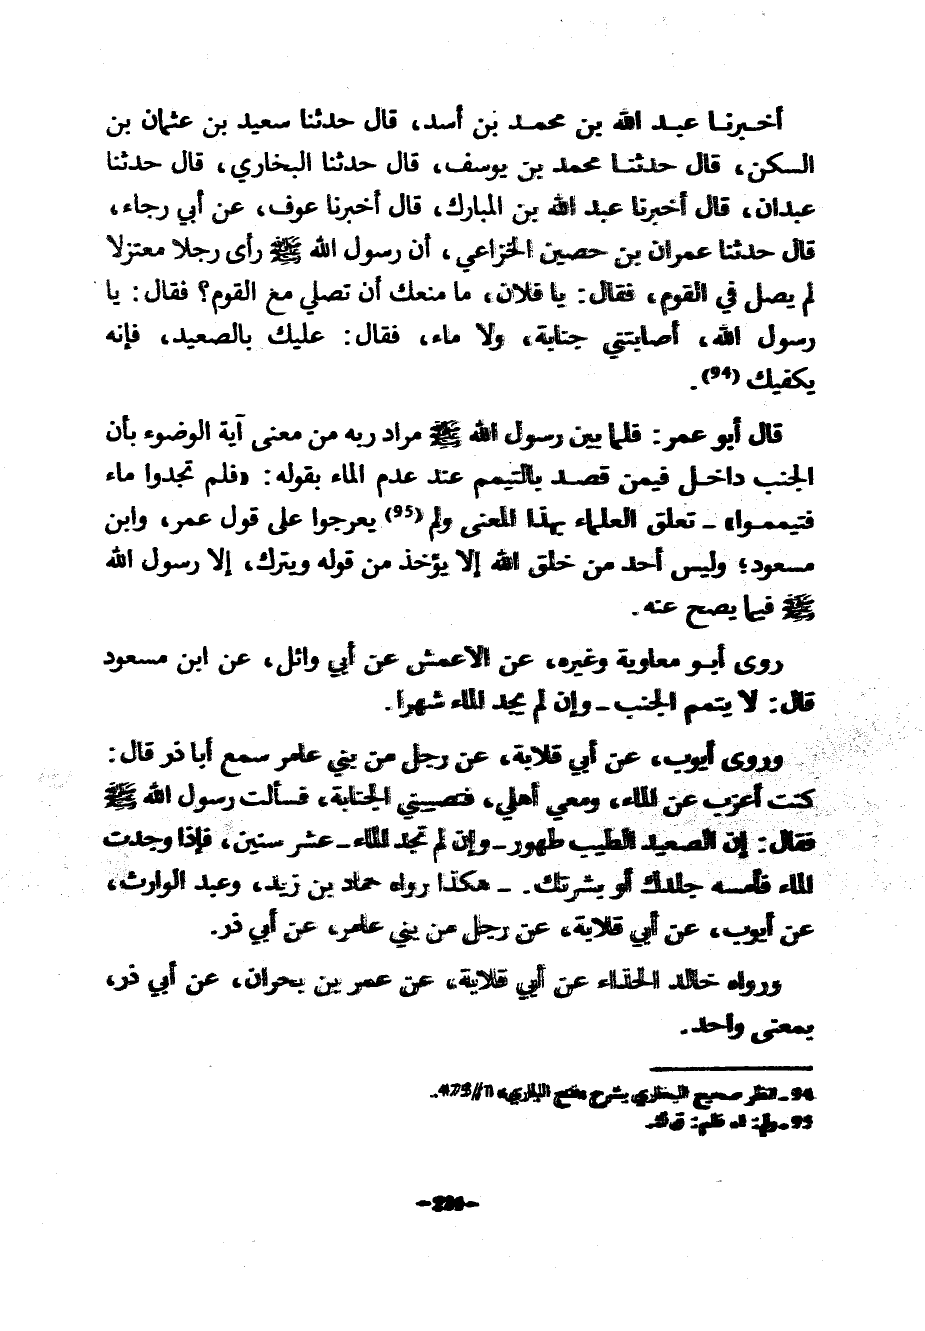 أخبرنا عبد الله بن محمد بن أسد، قال حدثنا سعيد بن عثمان بن
السكن، قال حدثنا محمد بن يوسف، قال حدثنا البخاري، قال حدثنا
عبدان، قال أخبرنا عبد الله بن المبارك، قال أخبرنا عوف، عن أبي رجاء،
قال حدثنا عمران بن حصين الخزاعي، أن رسول الله ﷺ رأى رجلا معتزلا
لم يصل في القوم، فقال: يا فلان، ما منعك أن تصلي مع القوم؟ فقال: يا
رسول الله، أصابتني جنابة، ولا ماء، فقال: عليك بالصعيد، فإنه
يكفيك (94).
قال أبو عمر: فلما بين رسول الله ﷺ مراد ربه من معنى آية الوضوء بأن
الجنب داخل فيمن قصد بالتيمم عند عدم الماء بقوله: «فلم تجدوا ماء
فتيمموا» ـ تعلق العلماء بهذا المعنى ولم (95) يعرجوا على قول عمر، وابن
مسعود؛ وليس أحد من خلق الله إلا يؤخذ من قوله ويترك، إلا رسول الله
ﷺ فيما يصح عنه.
روى أبو معاوية وغيره، عن الاعمش عن أبي وائل، عن ابن مسعود
قال: لا يتمم الجنب ـ وإن لم يجد الماء شهرا.
وروى أيوب، عن أبي قلابة، عن رجل من بني عامر سمع أبا ذر قال:
كنت أعزب عن الماء، ومعي أهلي، فتصيبني الجنابة، فسألت رسول الله ﷺ
فقال: إن الصعيد الطيب طهور ـ وإن لم تجد الماء ـ عشر سنين، فإذا وجدت
الماء فأمسه جلدك أو بشرتك. ـ هكذا رواه حماد بن زيد، وعبد الوارث،
عن أيوب، عن أبي قلابة، عن رجل من بني عامر، عن أبي ذر.
ورواه خالد الحذاء عن أبي قلابة، عن عمر بن بحران، عن أبي ذر،
بمعنى واحد.
94 ـ انظر صحيح البخاري بشرح «فتح الباري»
95 ـ ولم: